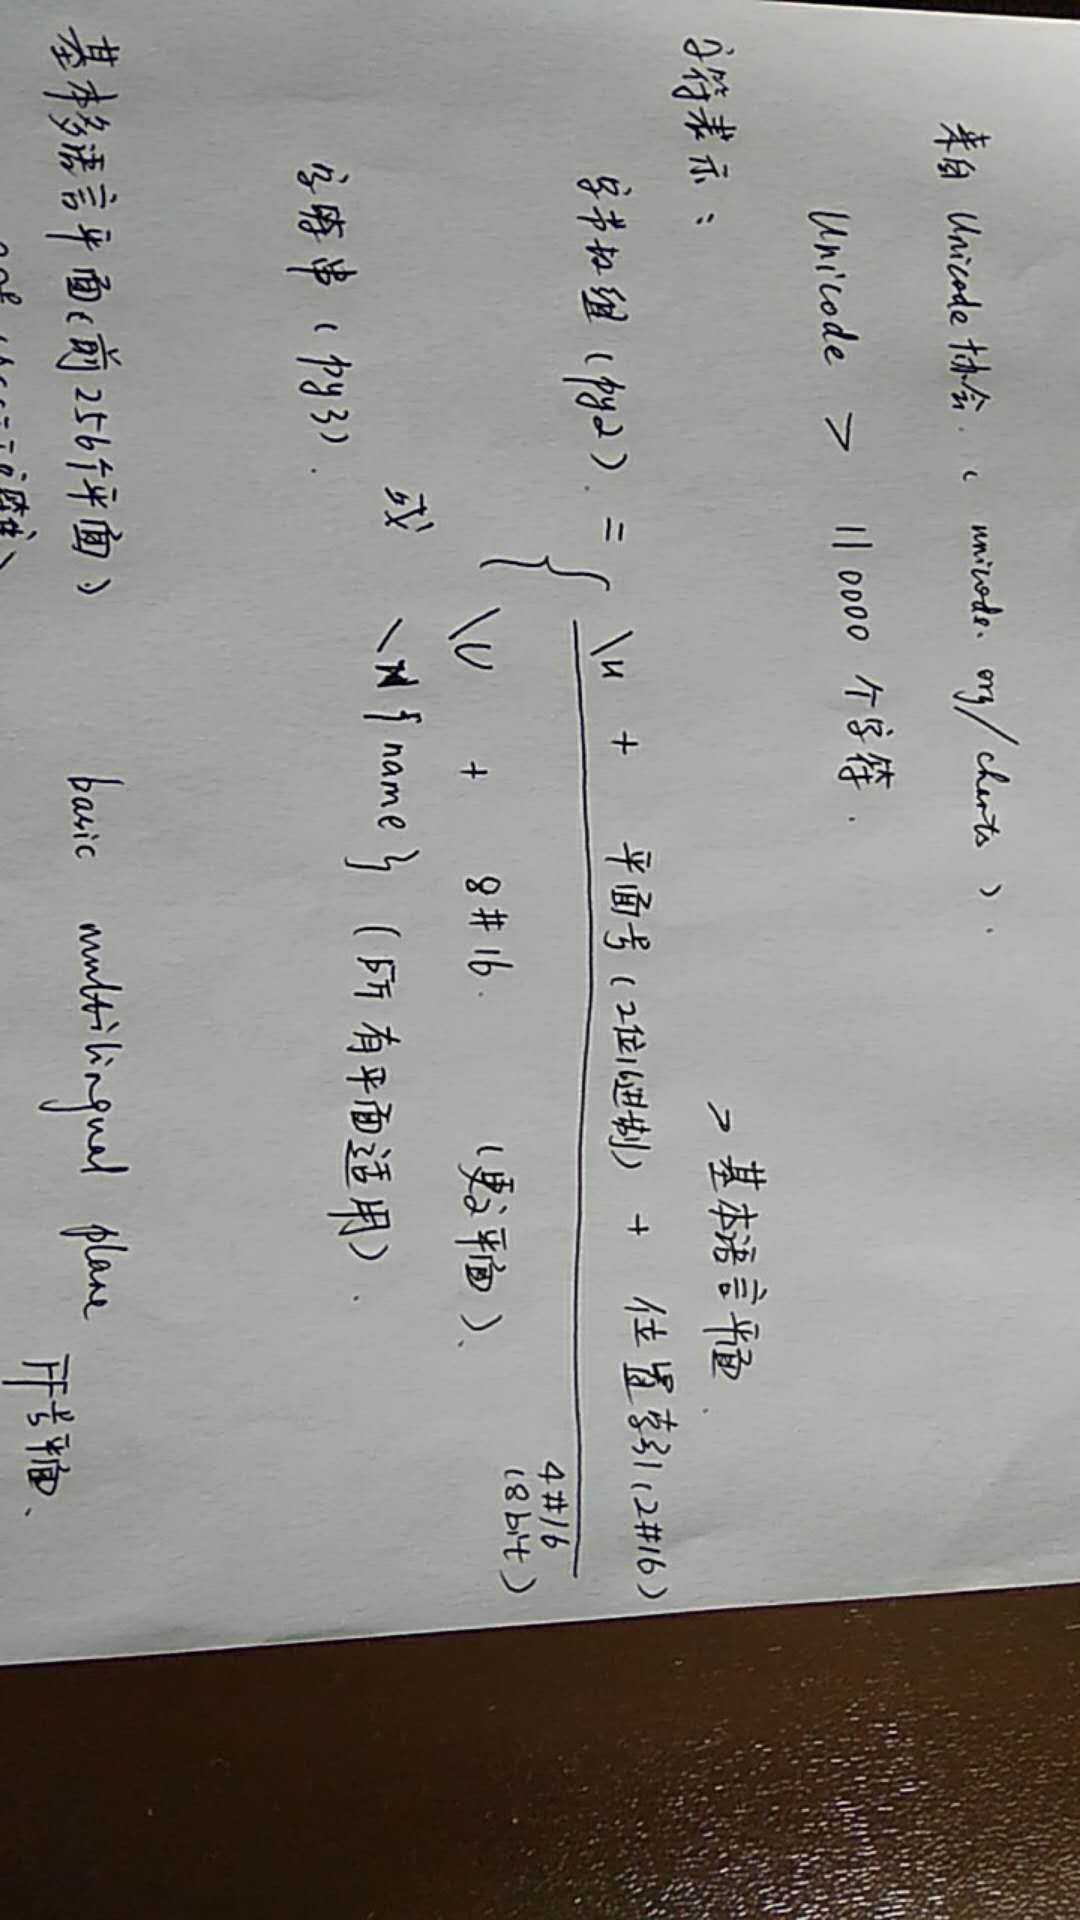 来自 Unicode 协会.（unicode.org/charts）.
Unicode > 110000 个字符.
字符表示：
> 基本语言平面.
字节权组（py2）. = { \u + 平面号（2位16进制）+ 位置索引（2#16）
4#16
（8bit）
\U + 8#16. （更多平面）.
或 \N{name}（所有平面适用）.
字符串（py3）.
基本多语言平面（前256个平面） basic multilingual plane
FF号平面.